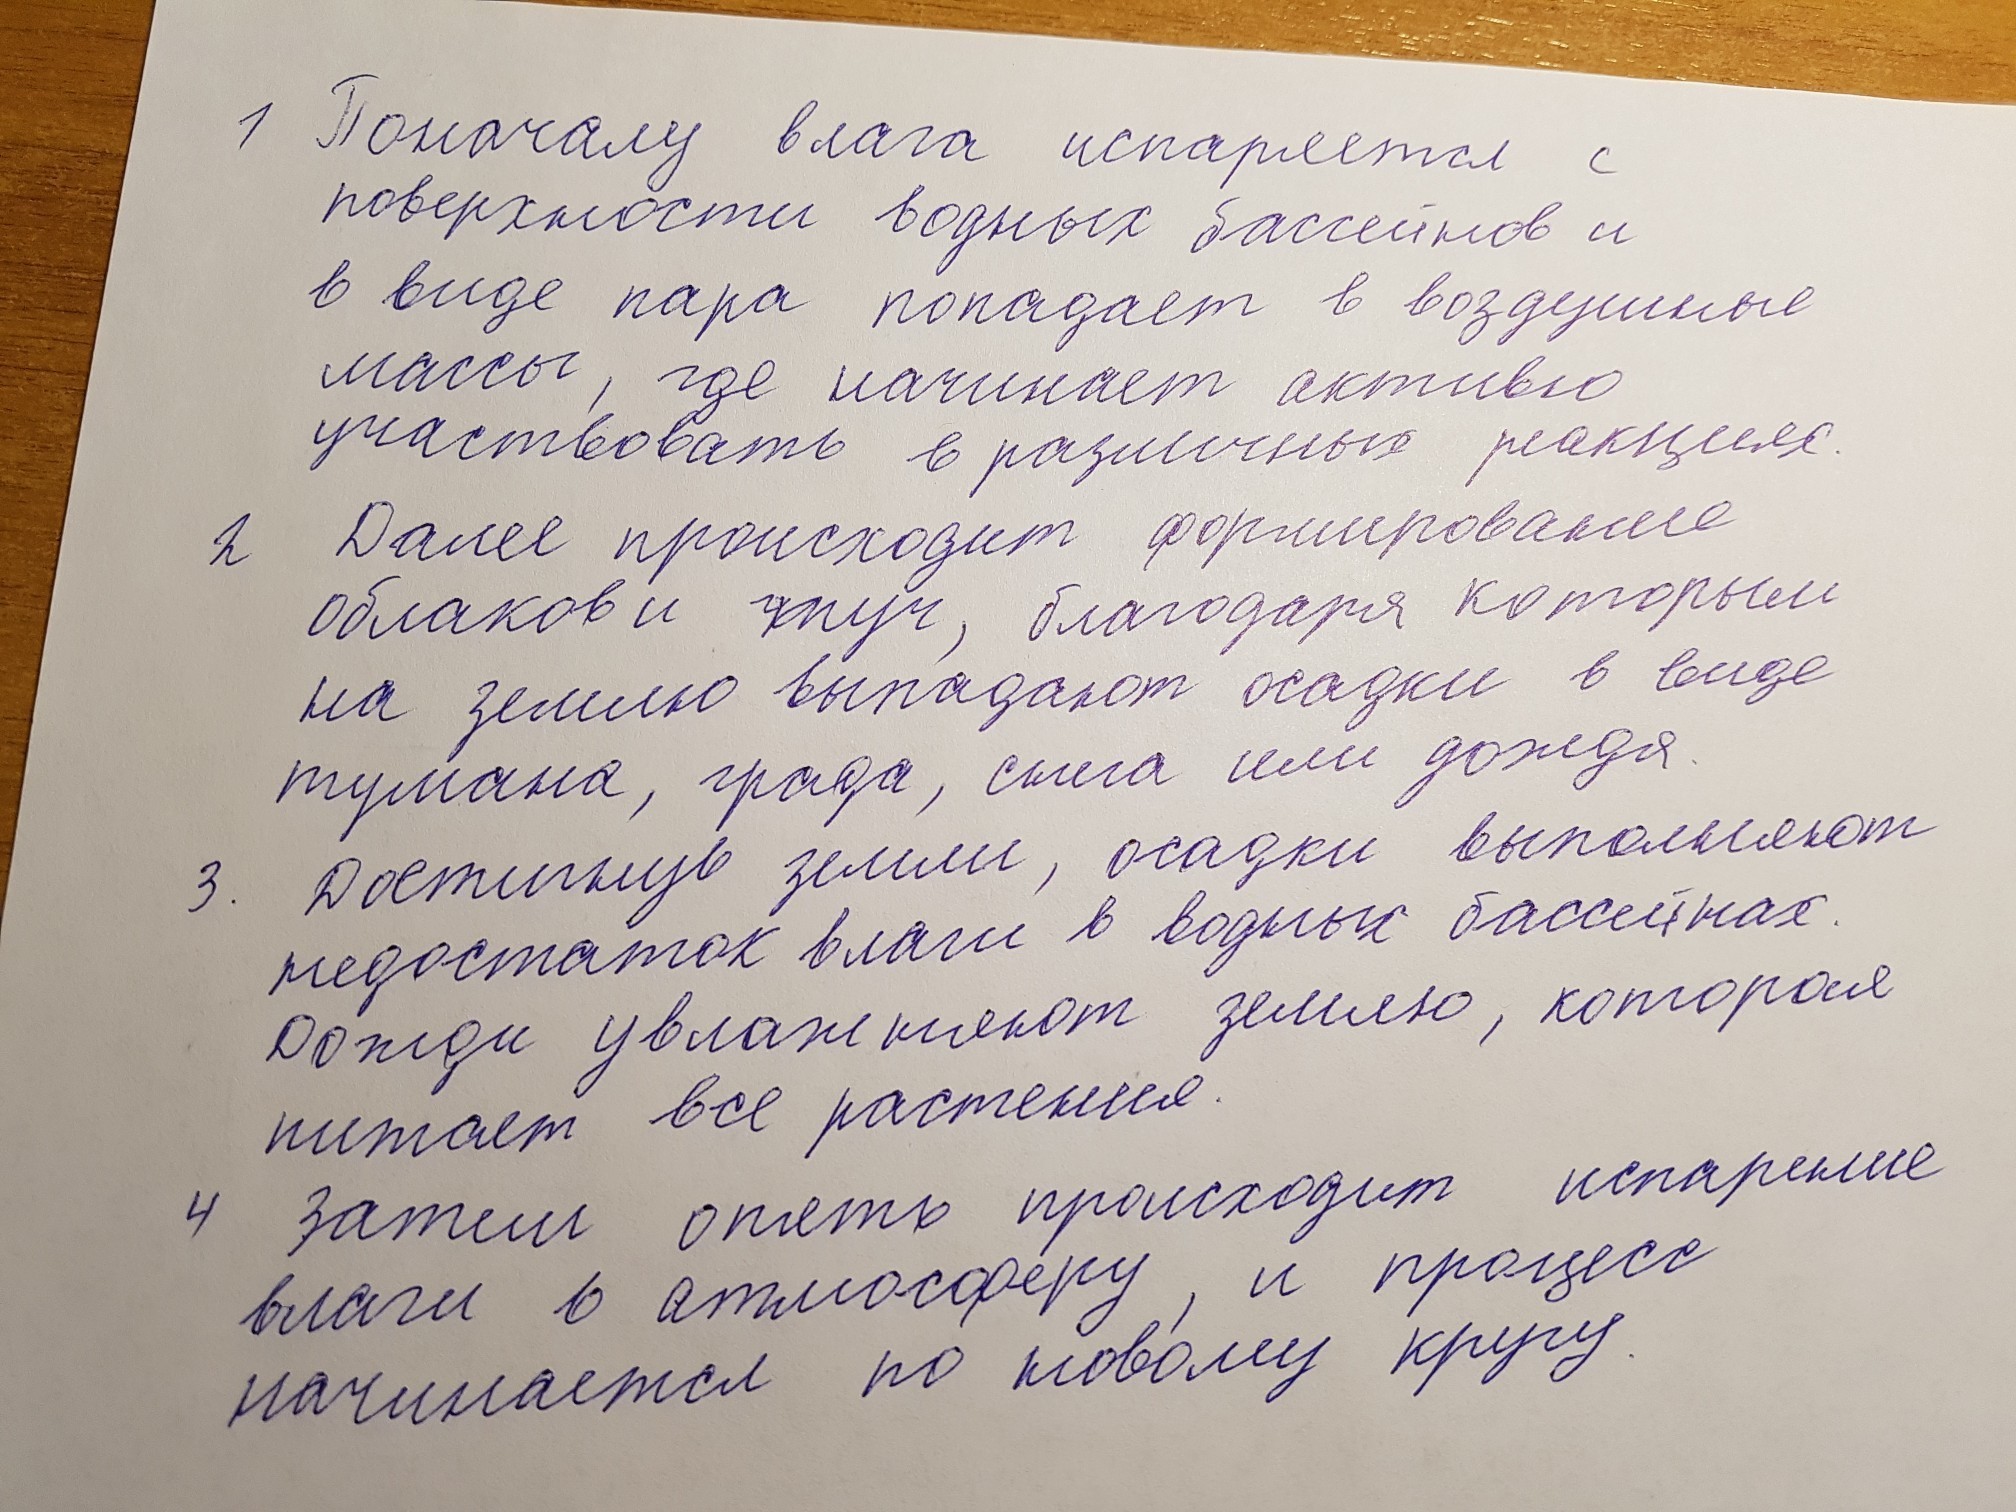 1 Поначалу влага испаряется с
поверхности водных бассейнов и
в виде пара попадает в воздушные
массы, где начинает активно
участвовать в различных реакциях.
2 Далее происходит формирование
облаков и туч, благодаря которым
на землю выпадают осадки в виде
тумана, града, снега или дождя.
3. Достигнув земли, осадки выполняют
недостаток влаги в водных бассейнах.
Дожди увлажняют землю, которая
питает все растения.
4 Затем опять происходит испарение
влаги в атмосферу, и процесс
начинается по новому кругу.